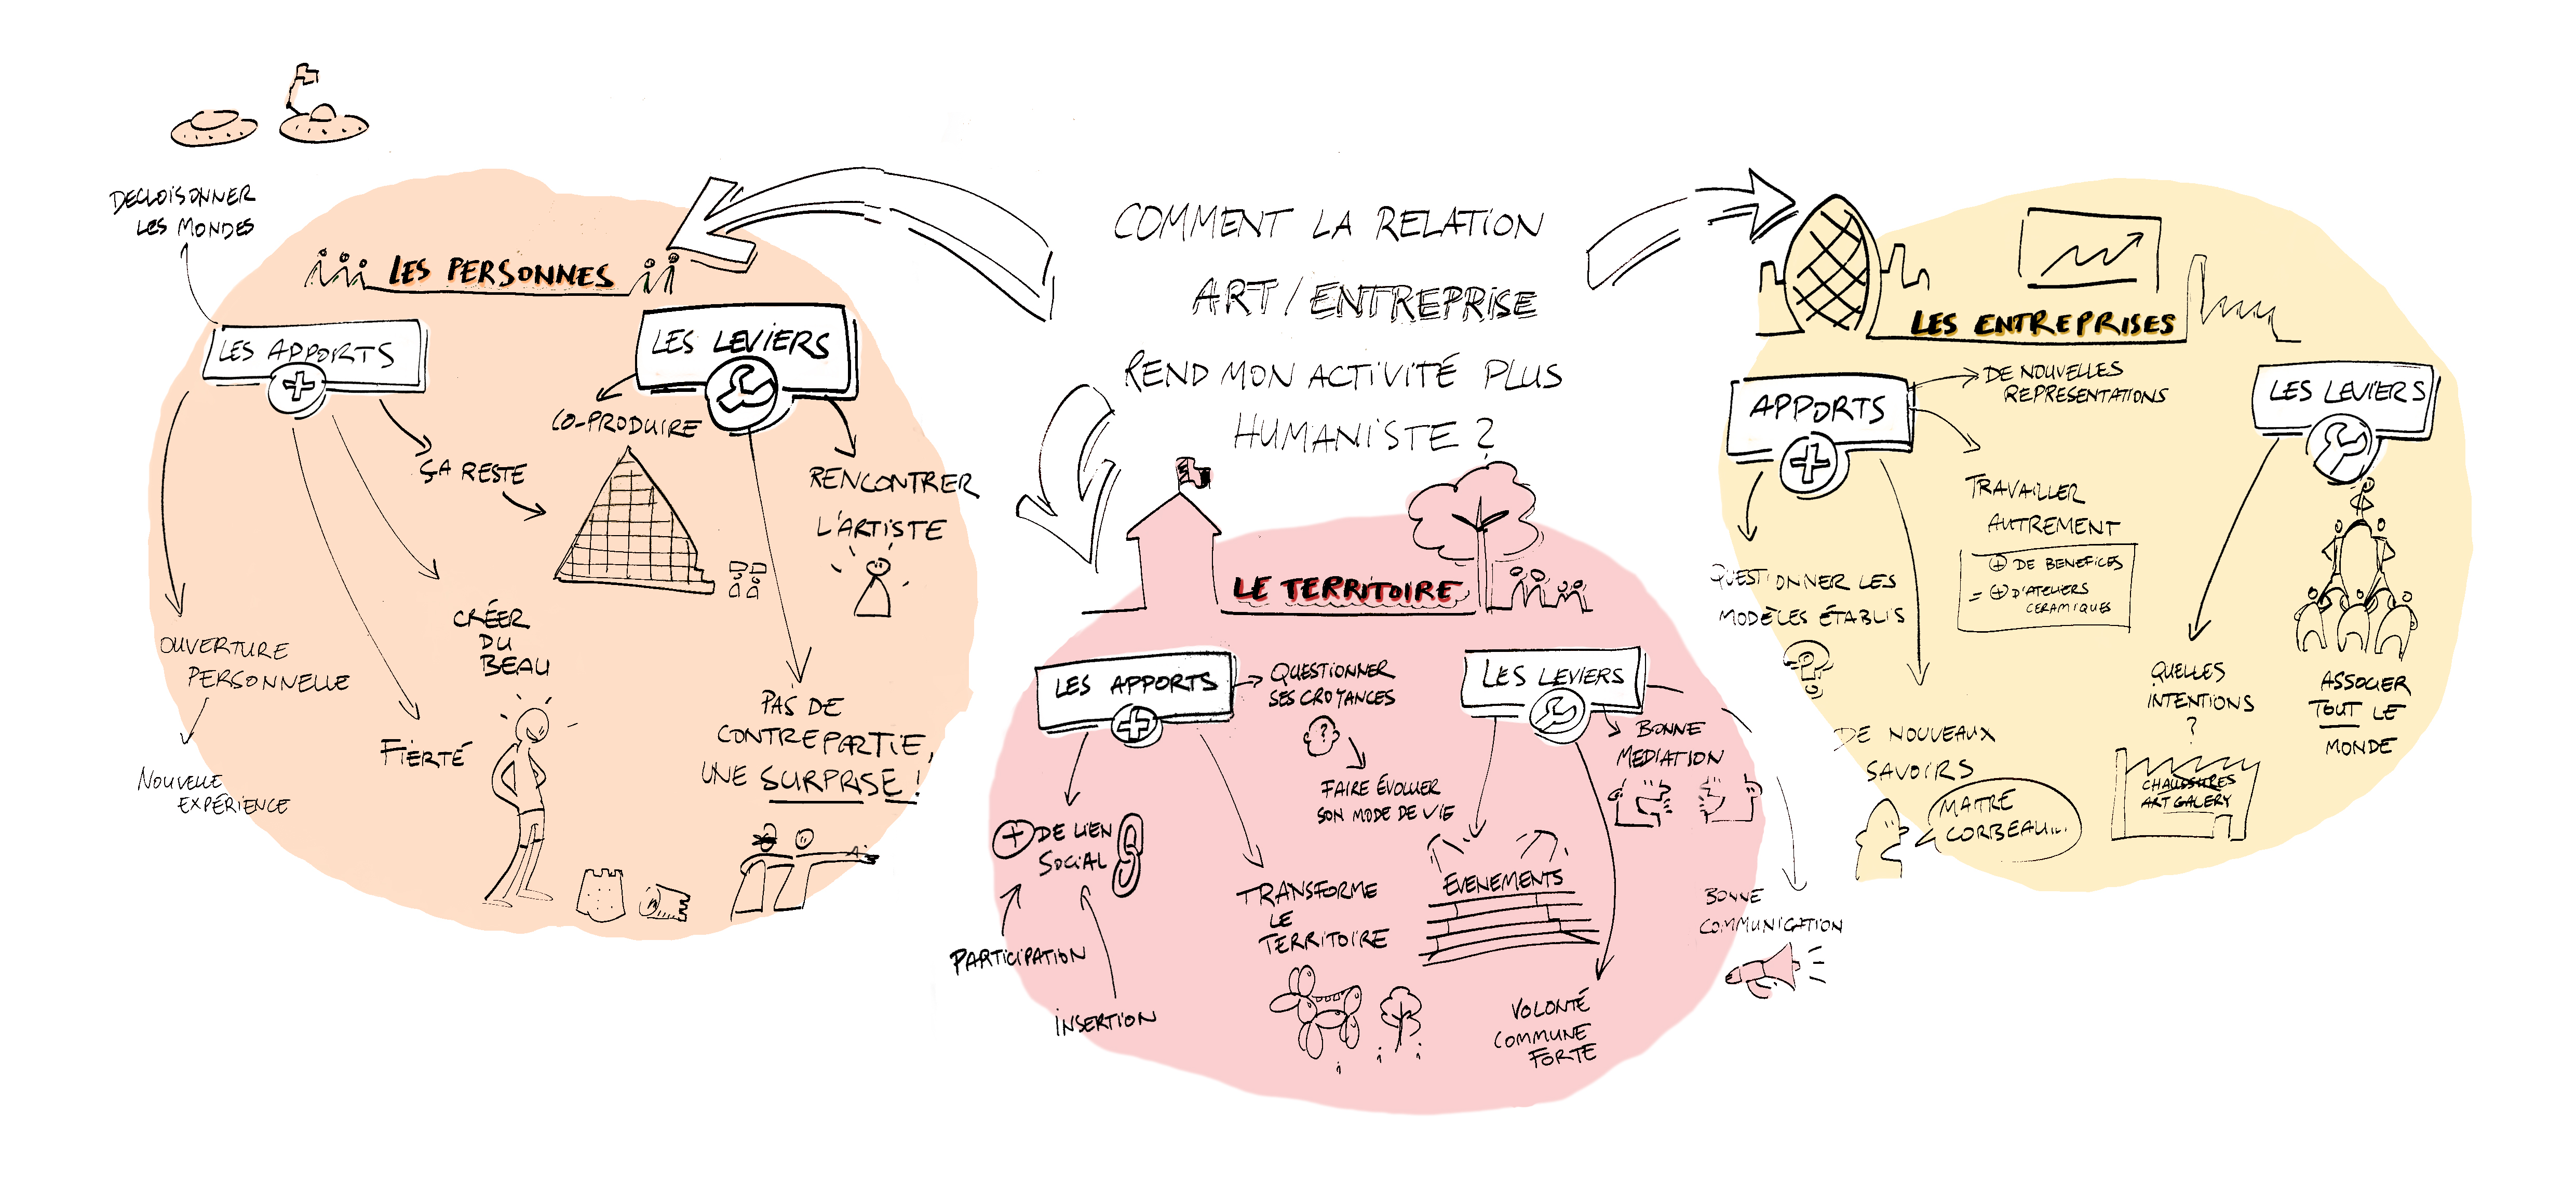 COMMENT LA RELATION
ART / ENTREPRISE
REND MON ACTIVITÉ PLUS
HUMANISTE ?
DECLOISONNER
LES MONDES
LES PERSONNES
LES APPORTS
ÇA RESTE
CRÉER
DU
BEAU
FIERTÉ
OUVERTURE
PERSONNELLE
NOUVELLE
EXPÉRIENCE
LES LEVIERS
CO-PRODUIRE
RENCONTRER
L'ARTISTE
PAS DE
CONTREPARTIE,
UNE SURPRISE !
LE TERRITOIRE
LES APPORTS
QUESTIONNER
SES CROYANCES
?
FAIRE ÉVOLUER
SON MODE DE VIE
+ DE LIEN
SOCIAL
PARTICIPATION
INSERTION
TRANSFORME
LE
TERRITOIRE
LES LEVIERS
BONNE
MEDIATION
EVENEMENTS
VOLONTÉ
COMMUNE
FORTE
BONNE
COMMUNICATION
LES ENTREPRISES
APPORTS
DE NOUVELLES
REPRESENTATIONS
TRAVAILLER
AUTREMENT
+ DE BENEFICES
= + D'ATELIERS
CERAMIQUES
QUESTIONNER LES
MODÈLES ÉTABLIS
?
DE NOUVEAUX
SAVOIRS
MAITRE
CORBEAU...
LES LEVIERS
QUELLES
INTENTIONS
?
CHAUSSURES
ART GALERY
ASSOCIER
TOUT LE
MONDE